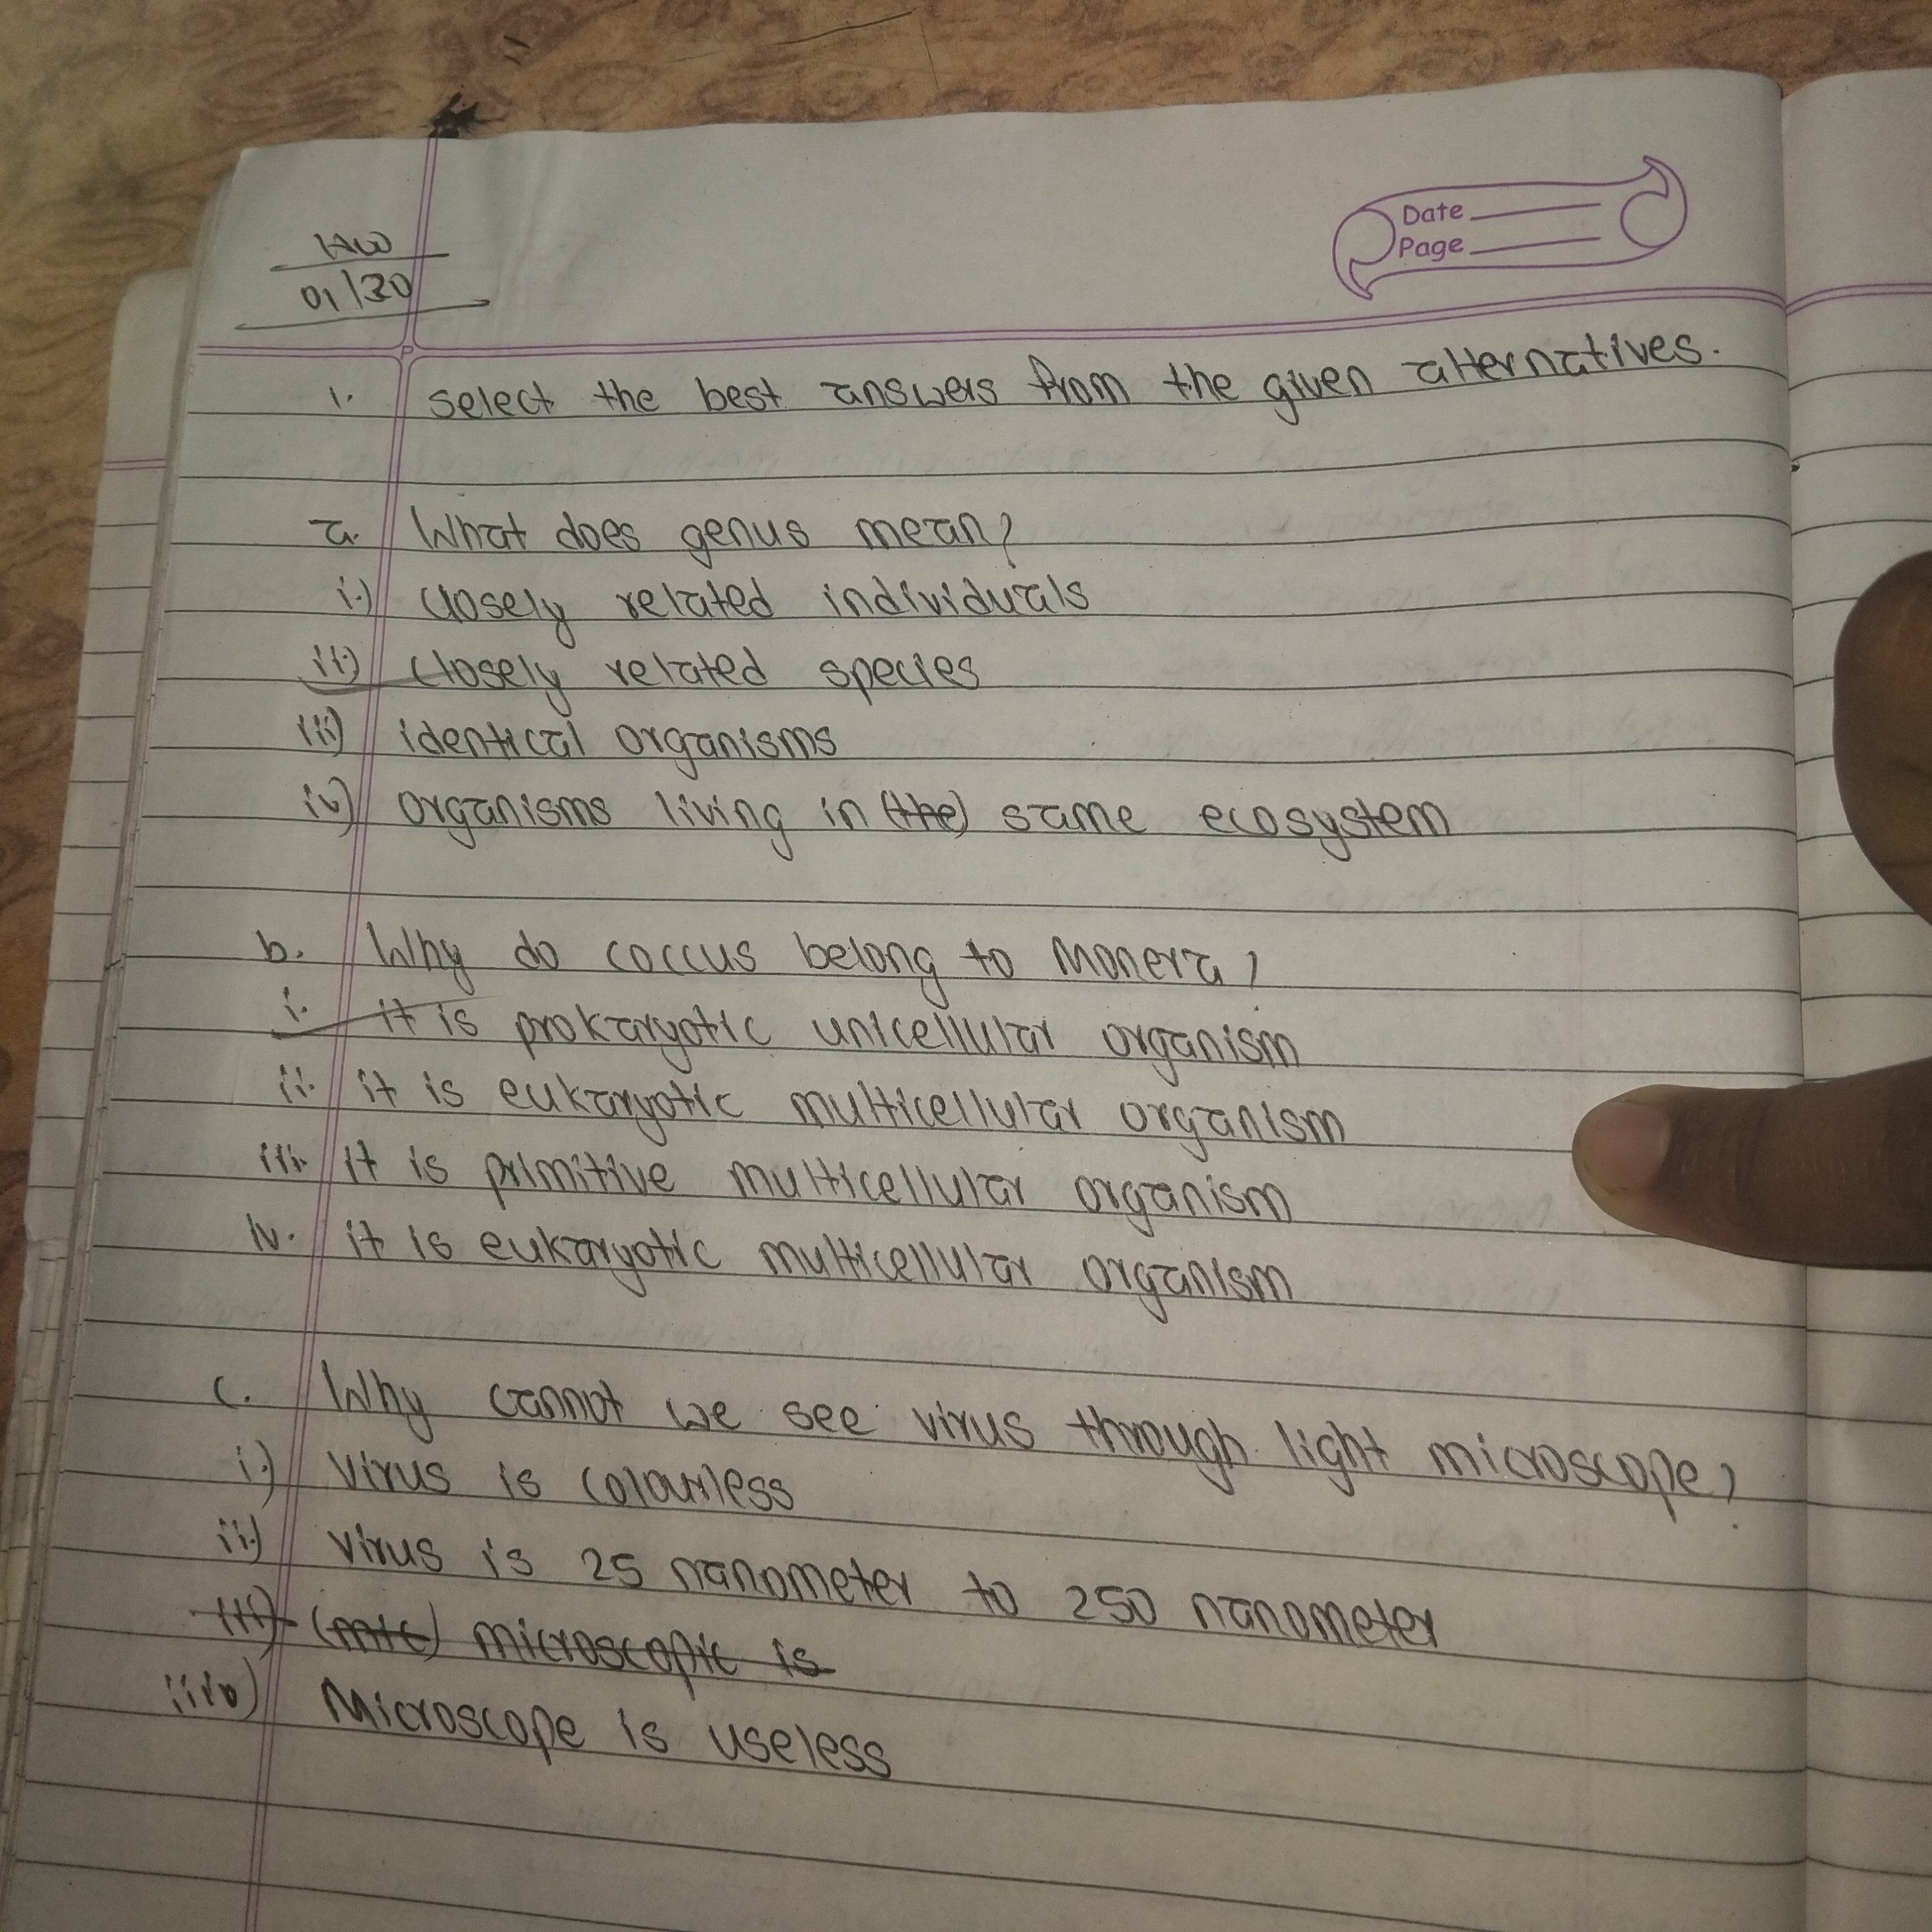 HW
01/30
Date
Page
1. select the best answers from the given alternatives.
a. What does genus mean?
i.) closely related individuals
ii.) closely related species
iii) identical organisms
iv) organisms living in (the) same ecosystem
b. Why do coccus belong to Monera?
i. it is prokaryotic unicellular organism
ii. it is eukaryotic multicellular organism
iii. it is primitive multicellular organism
iv. it is eukaryotic multicellular organism
c. Why cannot we see virus through light microscope?
i.) Virus is colourless
ii.) virus is 25 nanometer to 250 nanometer
iii) (mic) microscopic is
Microscope is useless